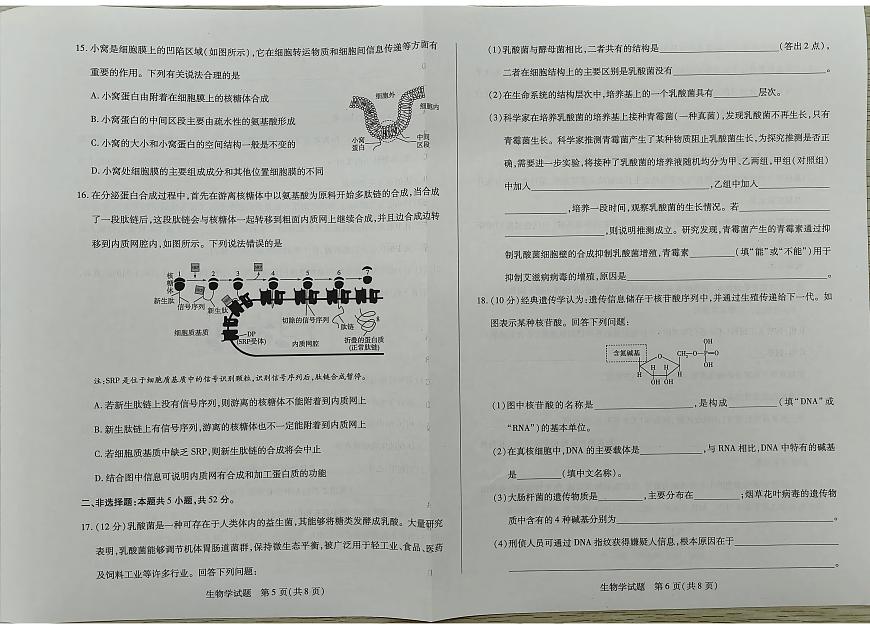 15. 小窝是细胞膜上的凹陷区域(如图所示),它在细胞转运物质和细胞间信息传递等方面有
重要的作用。下列有关说法合理的是
A. 小窝蛋白由附着在细胞膜上的核糖体合成
B. 小窝蛋白的中间区段主要由疏水性的氨基酸形成
C. 小窝的大小和小窝蛋白的空间结构一般是不变的
D. 小窝处细胞膜的主要组成成分和其他位置细胞膜的不同
细胞外
细胞内
小窝
蛋白
中间
区段
16. 在分泌蛋白合成过程中,首先在游离核糖体中以氨基酸为原料开始多肽链的合成,当合成
了一段肽链后,这段肽链会与核糖体一起转移到粗面内质网上继续合成,并且边合成边转
移到内质网腔内,如图所示。下列说法错误的是
核
糖
体
1 2 3 4 5 6 7
新生肽
信号序列
新生肽
切除的信号序列
肽链
8
细胞质基质
DP
(SRP受体)
内质网腔
折叠的蛋白质
(正常肽链)
注:SRP是位于细胞质基质中的信号识别颗粒,识别信号序列后,肽链合成暂停。
A. 若新生肽链上没有信号序列,则游离的核糖体不能附着到内质网上
B. 新生肽链上有信号序列,游离的核糖体也不一定能附着到内质网上
C. 若细胞质基质中缺乏 SRP,则新生肽链的合成将会中止
D. 结合图中信息可说明内质网有合成和加工蛋白质的功能
二、非选择题:本题共 5 小题,共 52 分。
17. (12 分)乳酸菌是一种可存在于人类体内的益生菌,其能够将糖类发酵成乳酸。大量研究
表明,乳酸菌能够调节机体胃肠道菌群,保持微生态平衡,被广泛用于轻工业、食品、医药
及饲料工业等许多行业。回答下列问题:
生物学试题 第 5 页(共 8 页)
(1)乳酸菌与酵母菌相比,二者共有的结构是____________(答出 2 点),
二者在细胞结构上的主要区别是乳酸菌没有____________。
(2)在生命系统的结构层次中,培养基上的一个乳酸菌具有______层次。
(3)科学家在培养乳酸菌的培养基上接种青霉菌(一种真菌),发现乳酸菌不再生长,只有
青霉菌生长。科学家推测青霉菌产生了某种物质阻止乳酸菌生长,为探究推测是否正
确,需要进一步实验,将接种了乳酸菌的培养液随机均分为甲、乙两组,甲组(对照组)
中加入____________,乙组中加入____________
____________,培养一段时间,观察乳酸菌的生长情况。若____________
____________,则说明推测成立。研究发现,青霉菌产生的青霉素通过抑
制乳酸菌细胞壁的合成抑制乳酸菌增殖,青霉素______(填“能”或“不能”)用于
抑制艾滋病病毒的增殖,原因是____________。
18. (10 分)经典遗传学认为:遗传信息储存于核苷酸序列中,并通过生殖传递给下一代。如
图表示某种核苷酸。回答下列问题:
含氮碱基
OH
CH₂—O—P=O
OH
O
H H H H
OH OH
(1)图中核苷酸的名称是____________,是构成______(填“DNA”或
“RNA”)的基本单位。
(2)在真核细胞中,DNA 的主要载体是________,与 RNA 相比,DNA 中特有的碱基
是______(填中文名称)。
(3)大肠杆菌的遗传物质是______,主要分布在______;烟草花叶病毒的遗传物
质中含有的 4 种碱基分别为____________。
(4)刑侦人员可通过 DNA 指纹获得嫌疑人信息,根本原因在于____________
____________。
生物学试题 第 6 页(共 8 页)